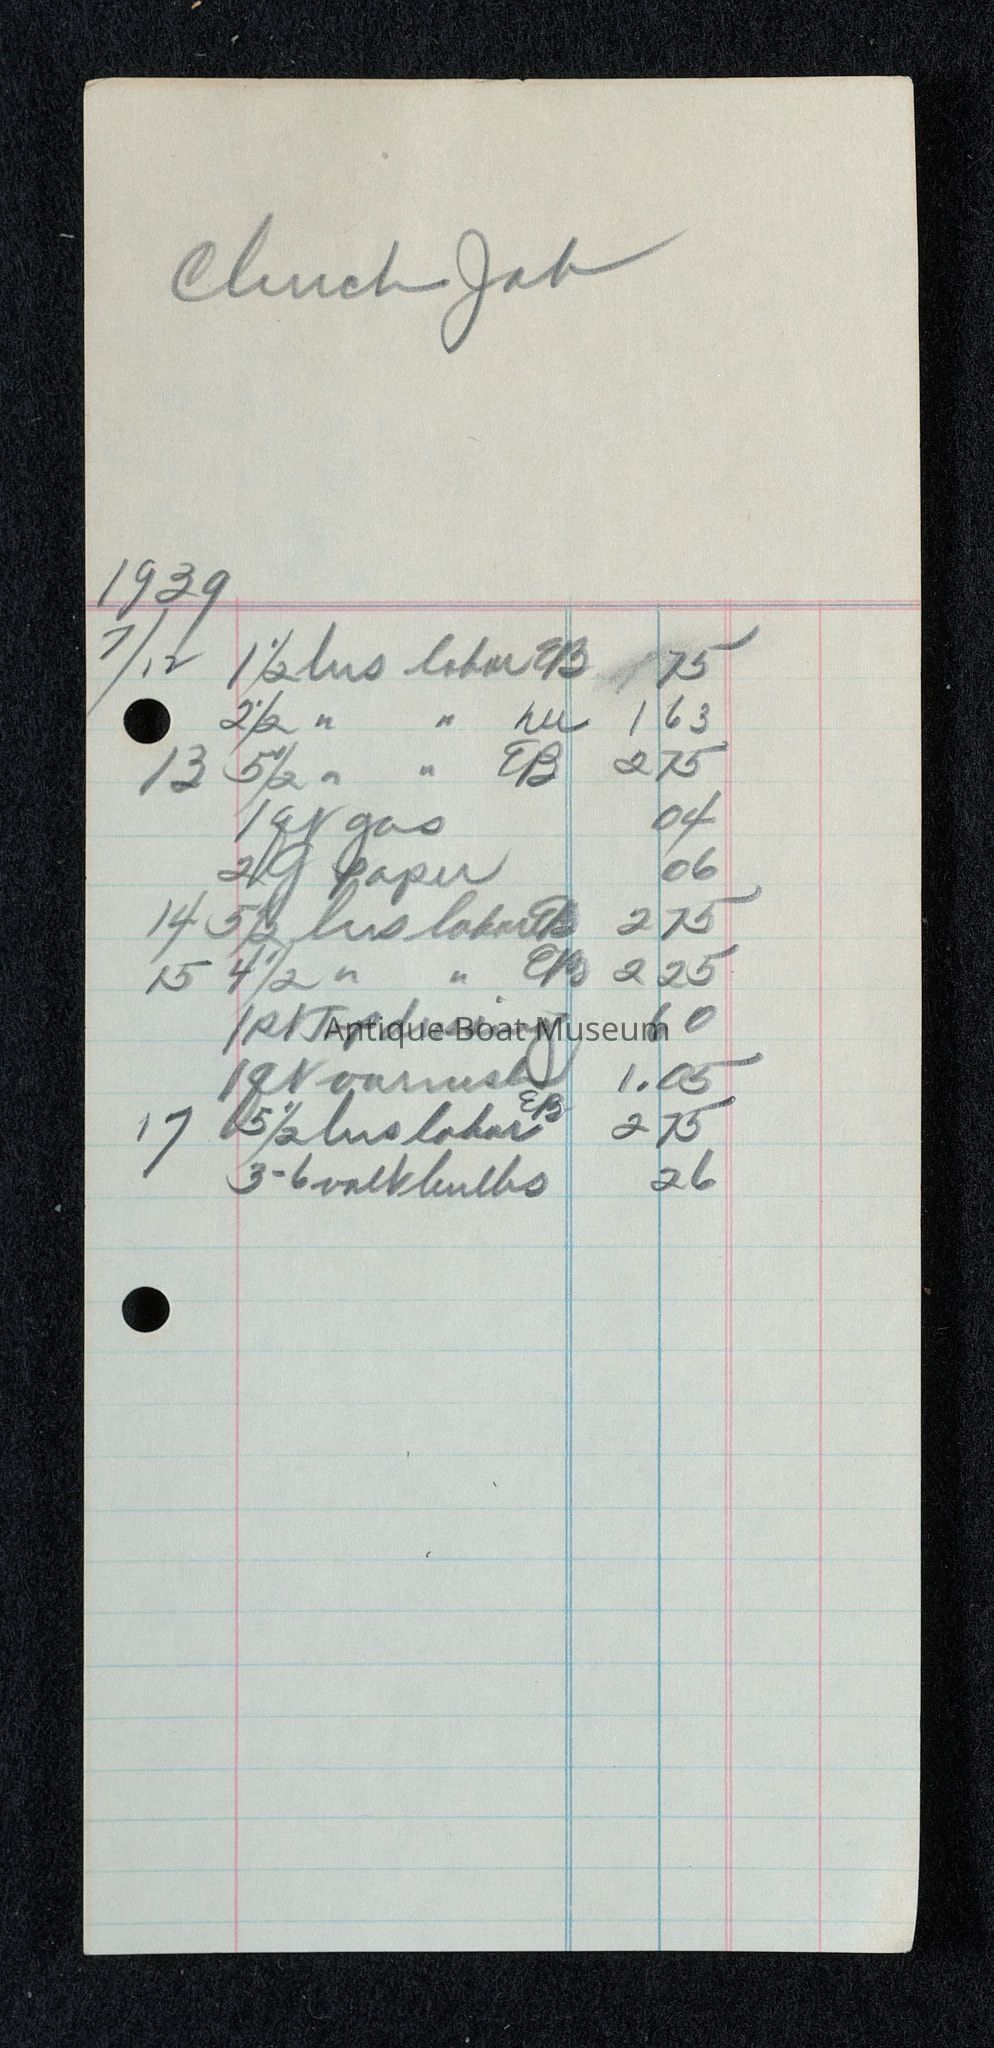 Church Job
1939
7/12 1 1/2 hrs labor EB 75
2 1/2 " " 1 63
13 5 1/2 " " EB 2 75
1 qt gas 04
2 paper 06
14 5 1/2 hrs labor EB 2 75
15 4 1/2 " " EB 2 25
1 pt 60
Antique Boat Museum
1 qt varnish 1.05
17 5 1/2 hrs labor EB 2 75
3-6 volt bulbs 26